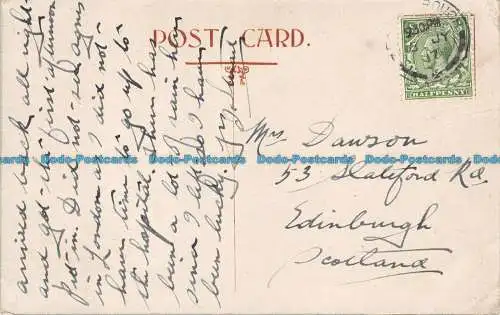 POST CARD.
arrived back all right
and got - in first afternoon
Put - in. Did not - see Agnes
in London as I did not -
have time to go up to
the hospital. There has
been a lot of rain here
since I left so I have
been lucky.
Mrs Dawson
53 Slateford Rd
Edinburgh
Scotland
HALFPENNY
9.30PM
8 JY
17
Dodo-Postcards Dodo-Postcards Dodo-Postcards Dodo-Postcards Dodo-Postcards